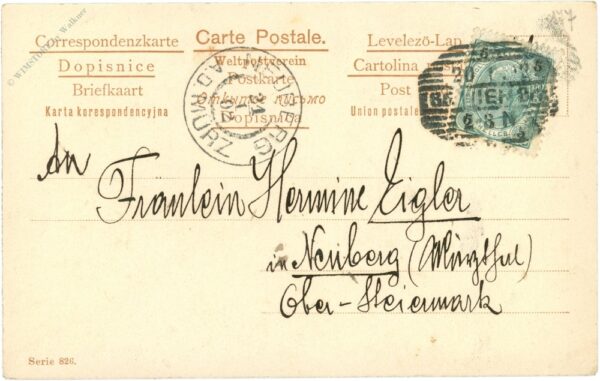 © WIMSTUTZ & Walkner
Correspondenzkarte Carte Postale. Levelező-Lap
Weltpostverein
Dopisnice Postkarte Cartolina
Briefkaart Открытое письмо Post
Karta korespondencyjna Dopisnica Union postale
NEUBERG
A.D. MÜRZ
An
Fräulein Hermine Zigler
in Neuberg (Mürzthal)
Ober-Steiermark
Serie 826.